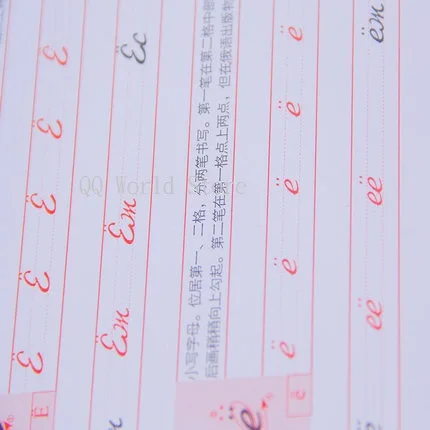 Ё
Ё Ё Ё Ё Ё
Ёж Ёж Ёс
小写字母。位居第一、二格，分两笔书写。第一笔在第二格中部
后画稍稍向上勾起。第二笔在第一格点上两点，但在俄语出版物
ё
ё
ё ё ё ё ё
ёё ёё ёж
QQ World Store